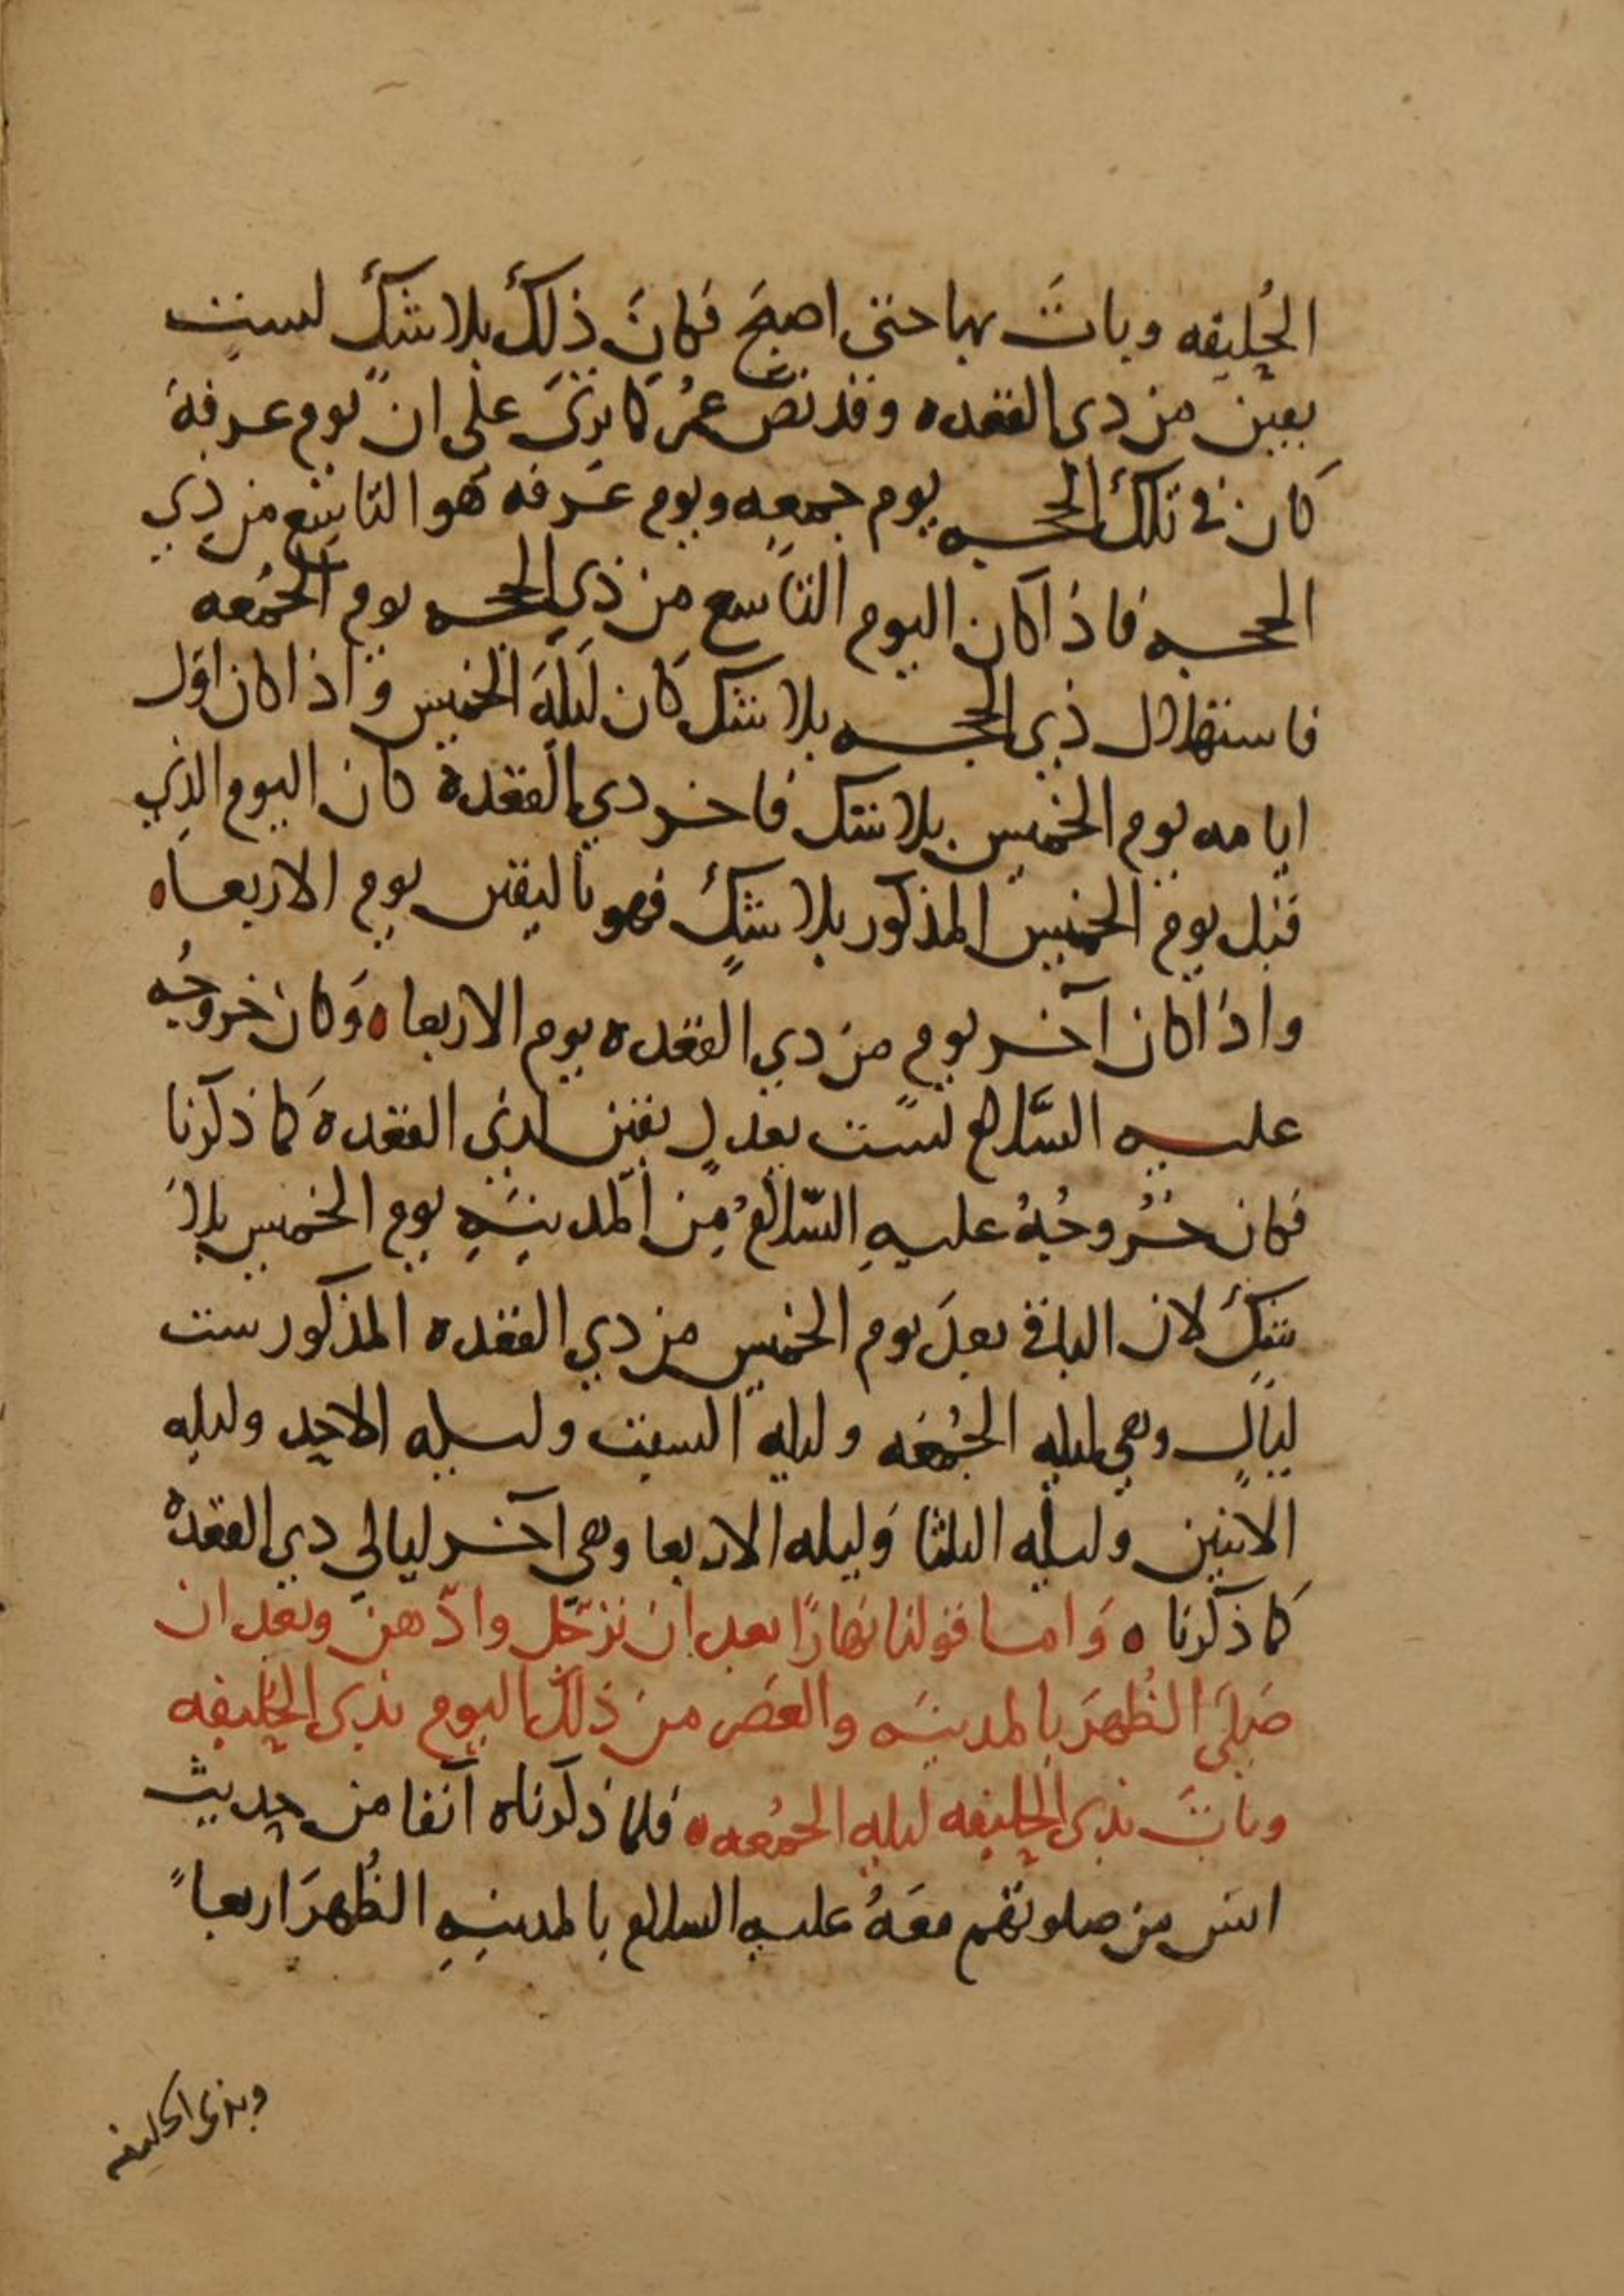 الحُليفه وباتَ بها حتى اصبَح فكانَ ذلكَ بلا شكَّ لستٍ
بقين من ذي القعده وقد نصّ عمرُ كما ترىَ على انّ يوم عرفة
كان في تلك الحجه يوم جمعه ويوم عرفه هو التاسِع من ذي
الحجه فاذا كان اليوم التاسع من ذي الحجه يوم الجُمعه
فاستهلال ذي الحجه بلا شك كان ليلةَ الخميس واذا كان اوّل
ايامه يوم الخميس بلا شك فاخر ذي القعدة كان اليوم الذي
قبل يوم الخميس المذكور بلا شكٍّ فهو باليقين يوم الاربعاه
واذا كان آخر يوم من ذي القعده يوم الاربعاه وكان خروجُه
عليه السَّلام لستٍ بقين لذي القعدة كما ذكرنا
فكان خُروجُهُ عليهِ السّلامُ مِن المدينَةِ يوم الخميس بلا
شكٍّ لان الباقي بعدَ يوم الخميس من ذي القعده المذكور ست
ليالٍ وهي ليله الجُمعَه وليله السبت وليله الاحد وليله
الاثنين وليله الثلثا وَليله الاربعا وهي آخر ليالي ذي القعدة
كما ذكرنا ه وَاما قولنا نهارًا بعد ان ترَجّل وادّهن وبعد ان
صَلىَ الظُهرَ بالمدينَه والعصَر من ذلك اليوم بذي الحُليفه
وباتَ بذي الحُليفه ليله الجُمعه ه فلما ذكرناه آنفا من حديث
انس من صلوتهم معَهُ عليه السلام بالمدينهِ الظُهرَ اربعاً
وبذي الحليفه